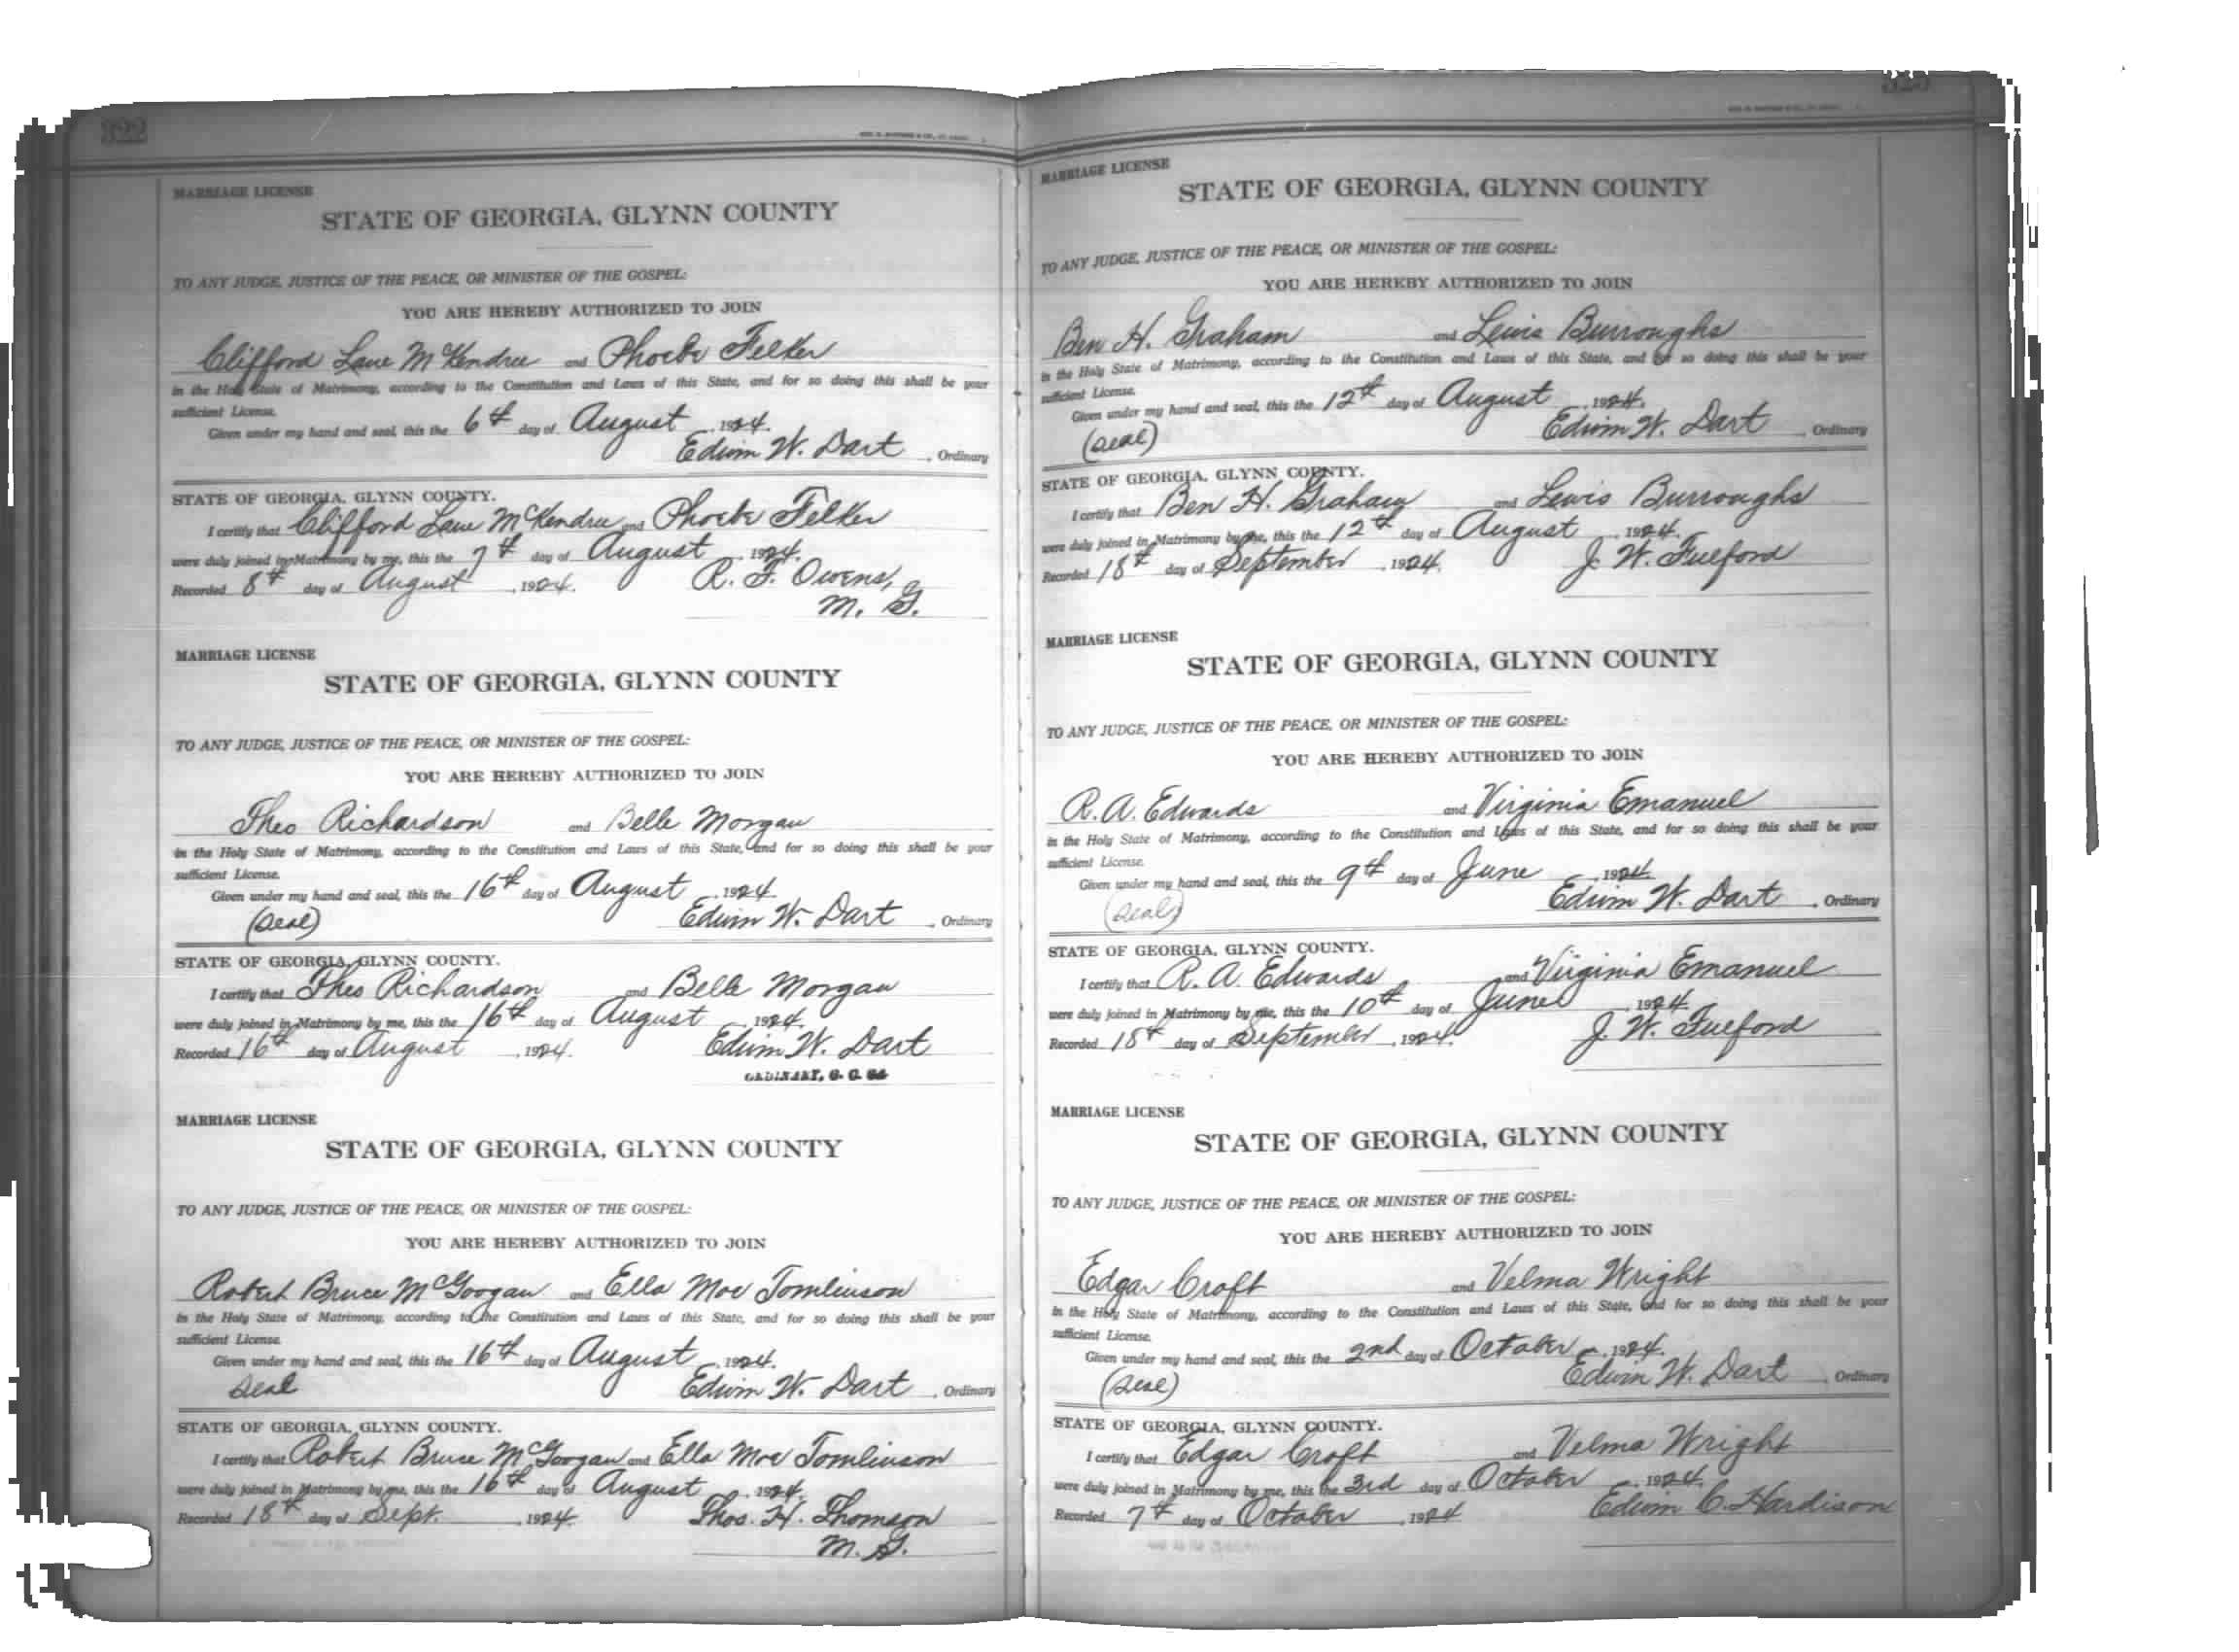 322
MARRIAGE LICENSE
STATE OF GEORGIA, GLYNN COUNTY
TO ANY JUDGE, JUSTICE OF THE PEACE, OR MINISTER OF THE GOSPEL:
YOU ARE HEREBY AUTHORIZED TO JOIN
Clifford Lane McKendree and Phoebe Felker
in the Holy State of Matrimony, according to the Constitution and Laws of this State, and for so doing this shall be your
sufficient License.
Given under my hand and seal, this the 6th day of August, 1924.
Edwin W. Dart, Ordinary
STATE OF GEORGIA, GLYNN COUNTY.
I certify that Clifford Lane McKendree and Phoebe Felker
were duly joined in Matrimony by me, this the 7th day of August, 1924.
Recorded 8th day of August, 1924. R. F. Owens,
M. G.
MARRIAGE LICENSE
STATE OF GEORGIA, GLYNN COUNTY
TO ANY JUDGE, JUSTICE OF THE PEACE, OR MINISTER OF THE GOSPEL:
YOU ARE HEREBY AUTHORIZED TO JOIN
Theo Richardson and Belle Morgan
in the Holy State of Matrimony, according to the Constitution and Laws of this State, and for so doing this shall be your
sufficient License.
Given under my hand and seal, this the 16th day of August, 1924.
(Seal) Edwin W. Dart, Ordinary
STATE OF GEORGIA, GLYNN COUNTY.
I certify that Theo Richardson and Belle Morgan
were duly joined in Matrimony by me, this the 16th day of August, 1924.
Recorded 16th day of August, 1924. Edwin W. Dart
ORDINARY, G. C. GA
MARRIAGE LICENSE
STATE OF GEORGIA, GLYNN COUNTY
TO ANY JUDGE, JUSTICE OF THE PEACE, OR MINISTER OF THE GOSPEL:
YOU ARE HEREBY AUTHORIZED TO JOIN
Robert Bruce McGoogan and Ella Moe Tomlinson
in the Holy State of Matrimony, according to the Constitution and Laws of this State, and for so doing this shall be your
sufficient License.
Given under my hand and seal, this the 16th day of August, 1924.
Seal Edwin W. Dart, Ordinary
STATE OF GEORGIA, GLYNN COUNTY.
I certify that Robert Bruce McGoogan and Ella Moe Tomlinson
were duly joined in Matrimony by me, this the 16th day of August, 1924.
Recorded 18th day of Sept., 1924. Thos. H. Thomson
M. G.
MARRIAGE LICENSE
STATE OF GEORGIA, GLYNN COUNTY
TO ANY JUDGE, JUSTICE OF THE PEACE, OR MINISTER OF THE GOSPEL:
YOU ARE HEREBY AUTHORIZED TO JOIN
Ben H. Graham and Lewis Burroughs
in the Holy State of Matrimony, according to the Constitution and Laws of this State, and for so doing this shall be your
sufficient License.
Given under my hand and seal, this the 12th day of August, 1924.
(Seal) Edwin W. Dart, Ordinary
STATE OF GEORGIA, GLYNN COUNTY.
I certify that Ben H. Graham and Lewis Burroughs
were duly joined in Matrimony by me, this the 12th day of August, 1924.
Recorded 18th day of September, 1924. J. W. Fulford
MARRIAGE LICENSE
STATE OF GEORGIA, GLYNN COUNTY
TO ANY JUDGE, JUSTICE OF THE PEACE, OR MINISTER OF THE GOSPEL:
YOU ARE HEREBY AUTHORIZED TO JOIN
R. A. Edwards and Virginia Emanuel
in the Holy State of Matrimony, according to the Constitution and Laws of this State, and for so doing this shall be your
sufficient License.
Given under my hand and seal, this the 9th day of June, 1924
(Seal) Edwin W. Dart, Ordinary
STATE OF GEORGIA, GLYNN COUNTY.
I certify that R. A. Edwards and Virginia Emanuel
were duly joined in Matrimony by me, this the 10th day of June, 1924.
Recorded 18th day of September, 1924. J. W. Fulford
MARRIAGE LICENSE
STATE OF GEORGIA, GLYNN COUNTY
TO ANY JUDGE, JUSTICE OF THE PEACE, OR MINISTER OF THE GOSPEL:
YOU ARE HEREBY AUTHORIZED TO JOIN
Edgar Croft and Velma Wright
in the Holy State of Matrimony, according to the Constitution and Laws of this State, and for so doing this shall be your
sufficient License.
Given under my hand and seal, this the 2nd day of October, 1924.
(Seal) Edwin W. Dart, Ordinary
STATE OF GEORGIA, GLYNN COUNTY.
I certify that Edgar Croft and Velma Wright
were duly joined in Matrimony by me, this the 3rd day of October, 1924.
Recorded 7th day of October, 1924 Edwin C. Hardison